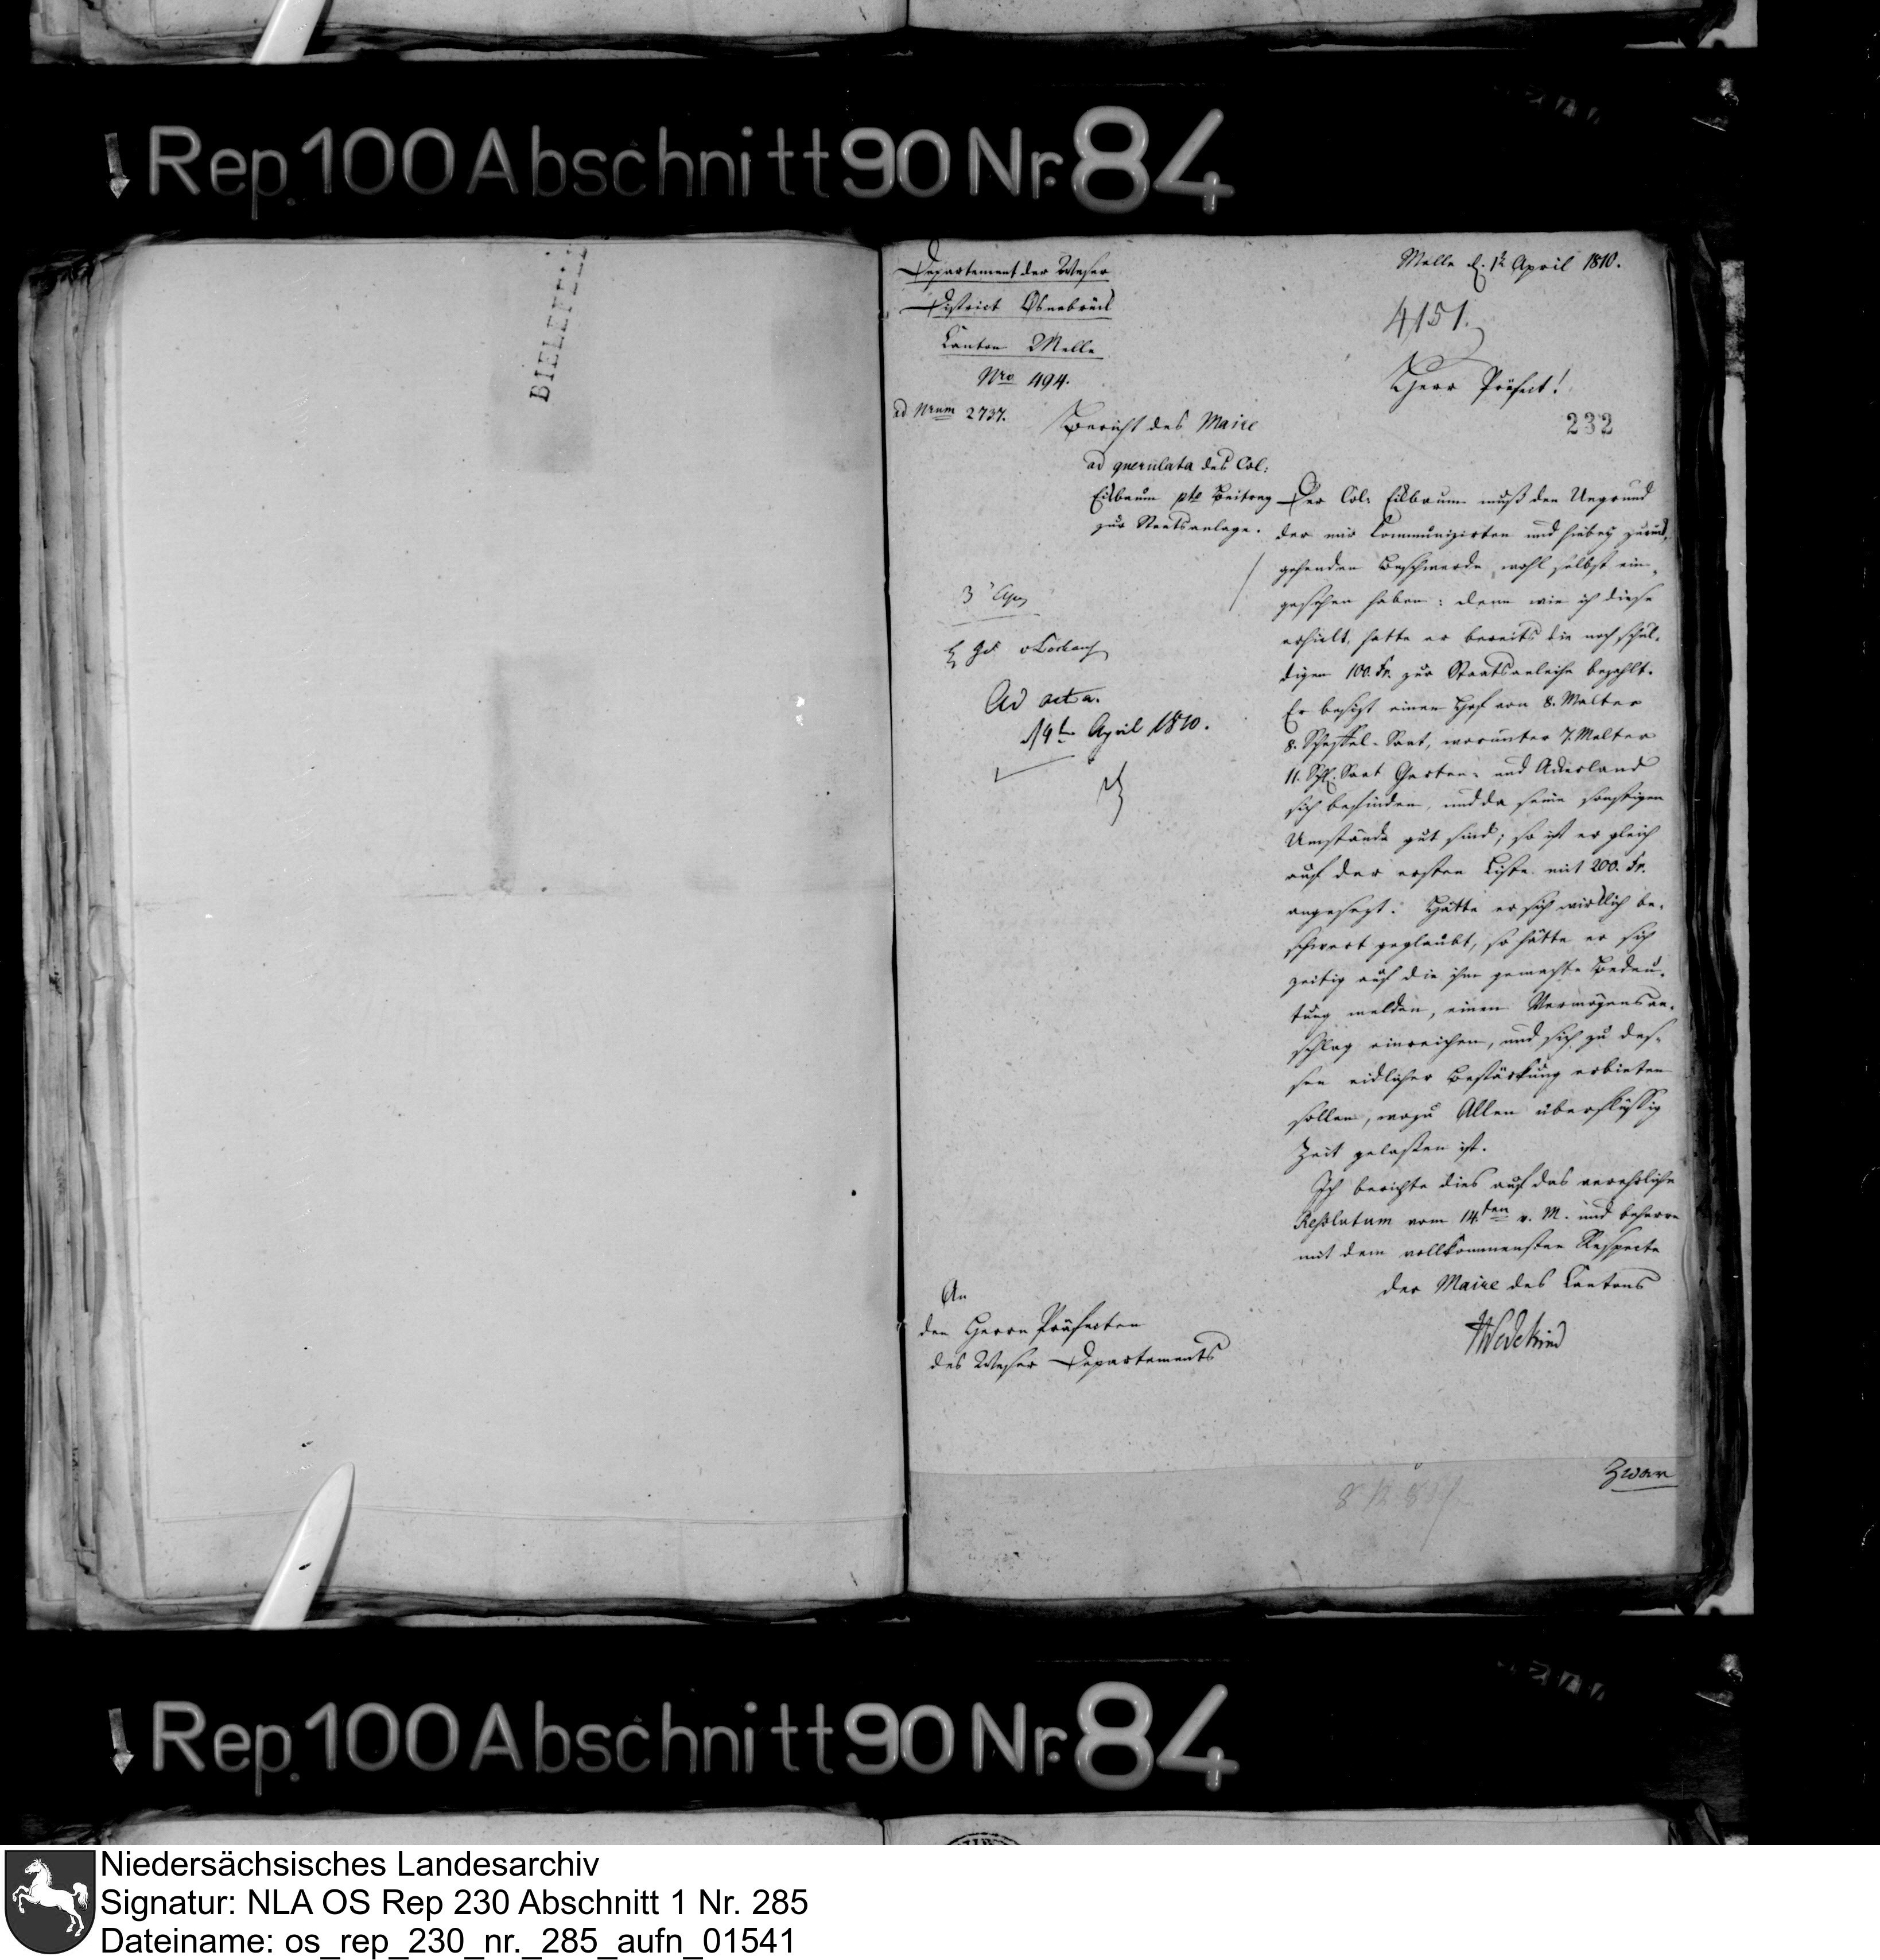 Rep. 100 Abschnitt 90 Nr. 84
BIELEFELD
Departement der Weser
District Osnabrück
Canton Melle
Nro 494.
ad Nrum 2737.
Bericht des Maire
ad querulata des Col:
Eickbaum pto Beitrag
zur Staatsanlage.
Melle d. 12 April 1810.
4151.
Herr Präfect!
232
Der Col: Eickbaum muß den Ungrund
der mir Communizirten und hiebey zurück,
gehenden Beschwerde, wohl selbst ein,
gesehen haben: denn wie ich diese
erhielt, hatte er bereits die noch schul,
digen 100. Fr. zur Staatsanleihe bezahlt.
Er besitzt einen Hof von 8. Malter
8. Scheffel-Saat, worunter 7. Malter
11. Schl. Saat Garten- und Ackerland
sich befinden, und da seine sonstigen
Umstände gut sind; so ist er gleich
auf der ersten Liste mit 200. Fr.
angesezt. Hätte er sich wirklich be,
schwert geglaubt, so hätte er sich
zeitig auf die ihm gemachte Bedeu,
tung melden, einen Vermögensan,
schlag einreichen, und sich zu des,
sen eidlicher Bestärkung erbieten
sollen, wozu Allen überflüssig
Zeit gelaßen ist.
Ich berichte dies auf das verehrliche
Resolutum vom 14ten v. M. und beharre
mit dem vollkommensten Respecte
der Maire des Cantons
HWedekind
Ad acta.
14t April 1810.
An
den Herrn Präfecten
des Weser Departements
Zwar
Rep. 100 Abschnitt 90 Nr. 84
Niedersächsisches Landesarchiv
Signatur: NLA OS Rep 230 Abschnitt 1 Nr. 285
Dateiname: os_rep_230_nr._285_aufn_01541